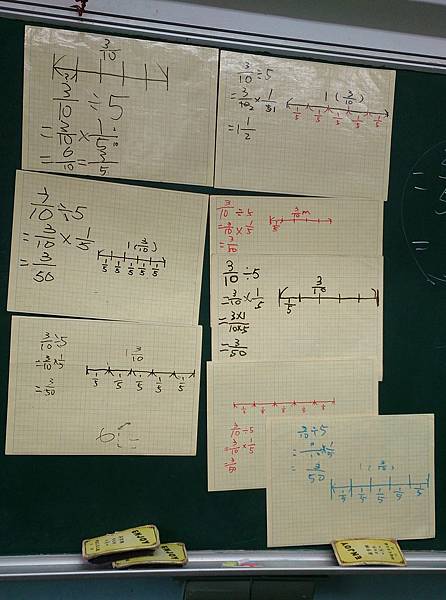 3/10
3/10 ÷ 5
= 3/10 × 1/5
= 6/10 = 3/5
3/10 ÷ 5
= 3/10 × 1/5
= 1 1/2
1 (3/10)
1/5 1/5 1/5 1/5 1/5
3/10 ÷ 5
= 3/10 × 1/5
= 3/50
1 (3/10)
1/5 1/5 1/5 1/5 1/5
3/10 ÷ 5
= 3/10 × 1/5
= 3/50
3/10 m
3/10 ÷ 5
= 3/10 × 1/5
= 3×1/10×5
= 3/50
3/10
1/5
3/10 ÷ 5
= 3/10 × 1/5
= 3/50
1 3/10
1/5 1/5 1/5 1/5 1/5
3/10 ÷ 5
= 3/10 × 1/5
= 3/50
3/10 ÷ 5
= 3/10 × 1/5
= 3/50
1 (3/10)
1/5 1/5 1/5 1/5 1/5
ENJOY
ENJOY
ENJOY